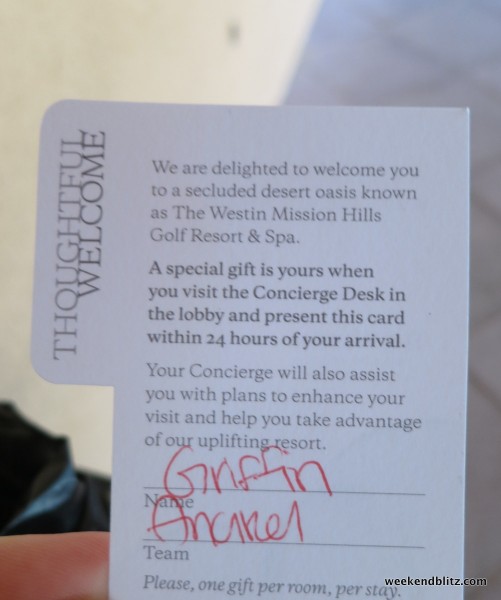 THOUGHTFUL
WELCOME
We are delighted to welcome you
to a secluded desert oasis known
as The Westin Mission Hills
Golf Resort & Spa.
A special gift is yours when
you visit the Concierge Desk in
the lobby and present this card
within 24 hours of your arrival.
Your Concierge will also assist
you with plans to enhance your
visit and help you take advantage
of our uplifting resort.
Griffin
Name
Team
Please, one gift per room, per stay.
weekendblitz.com